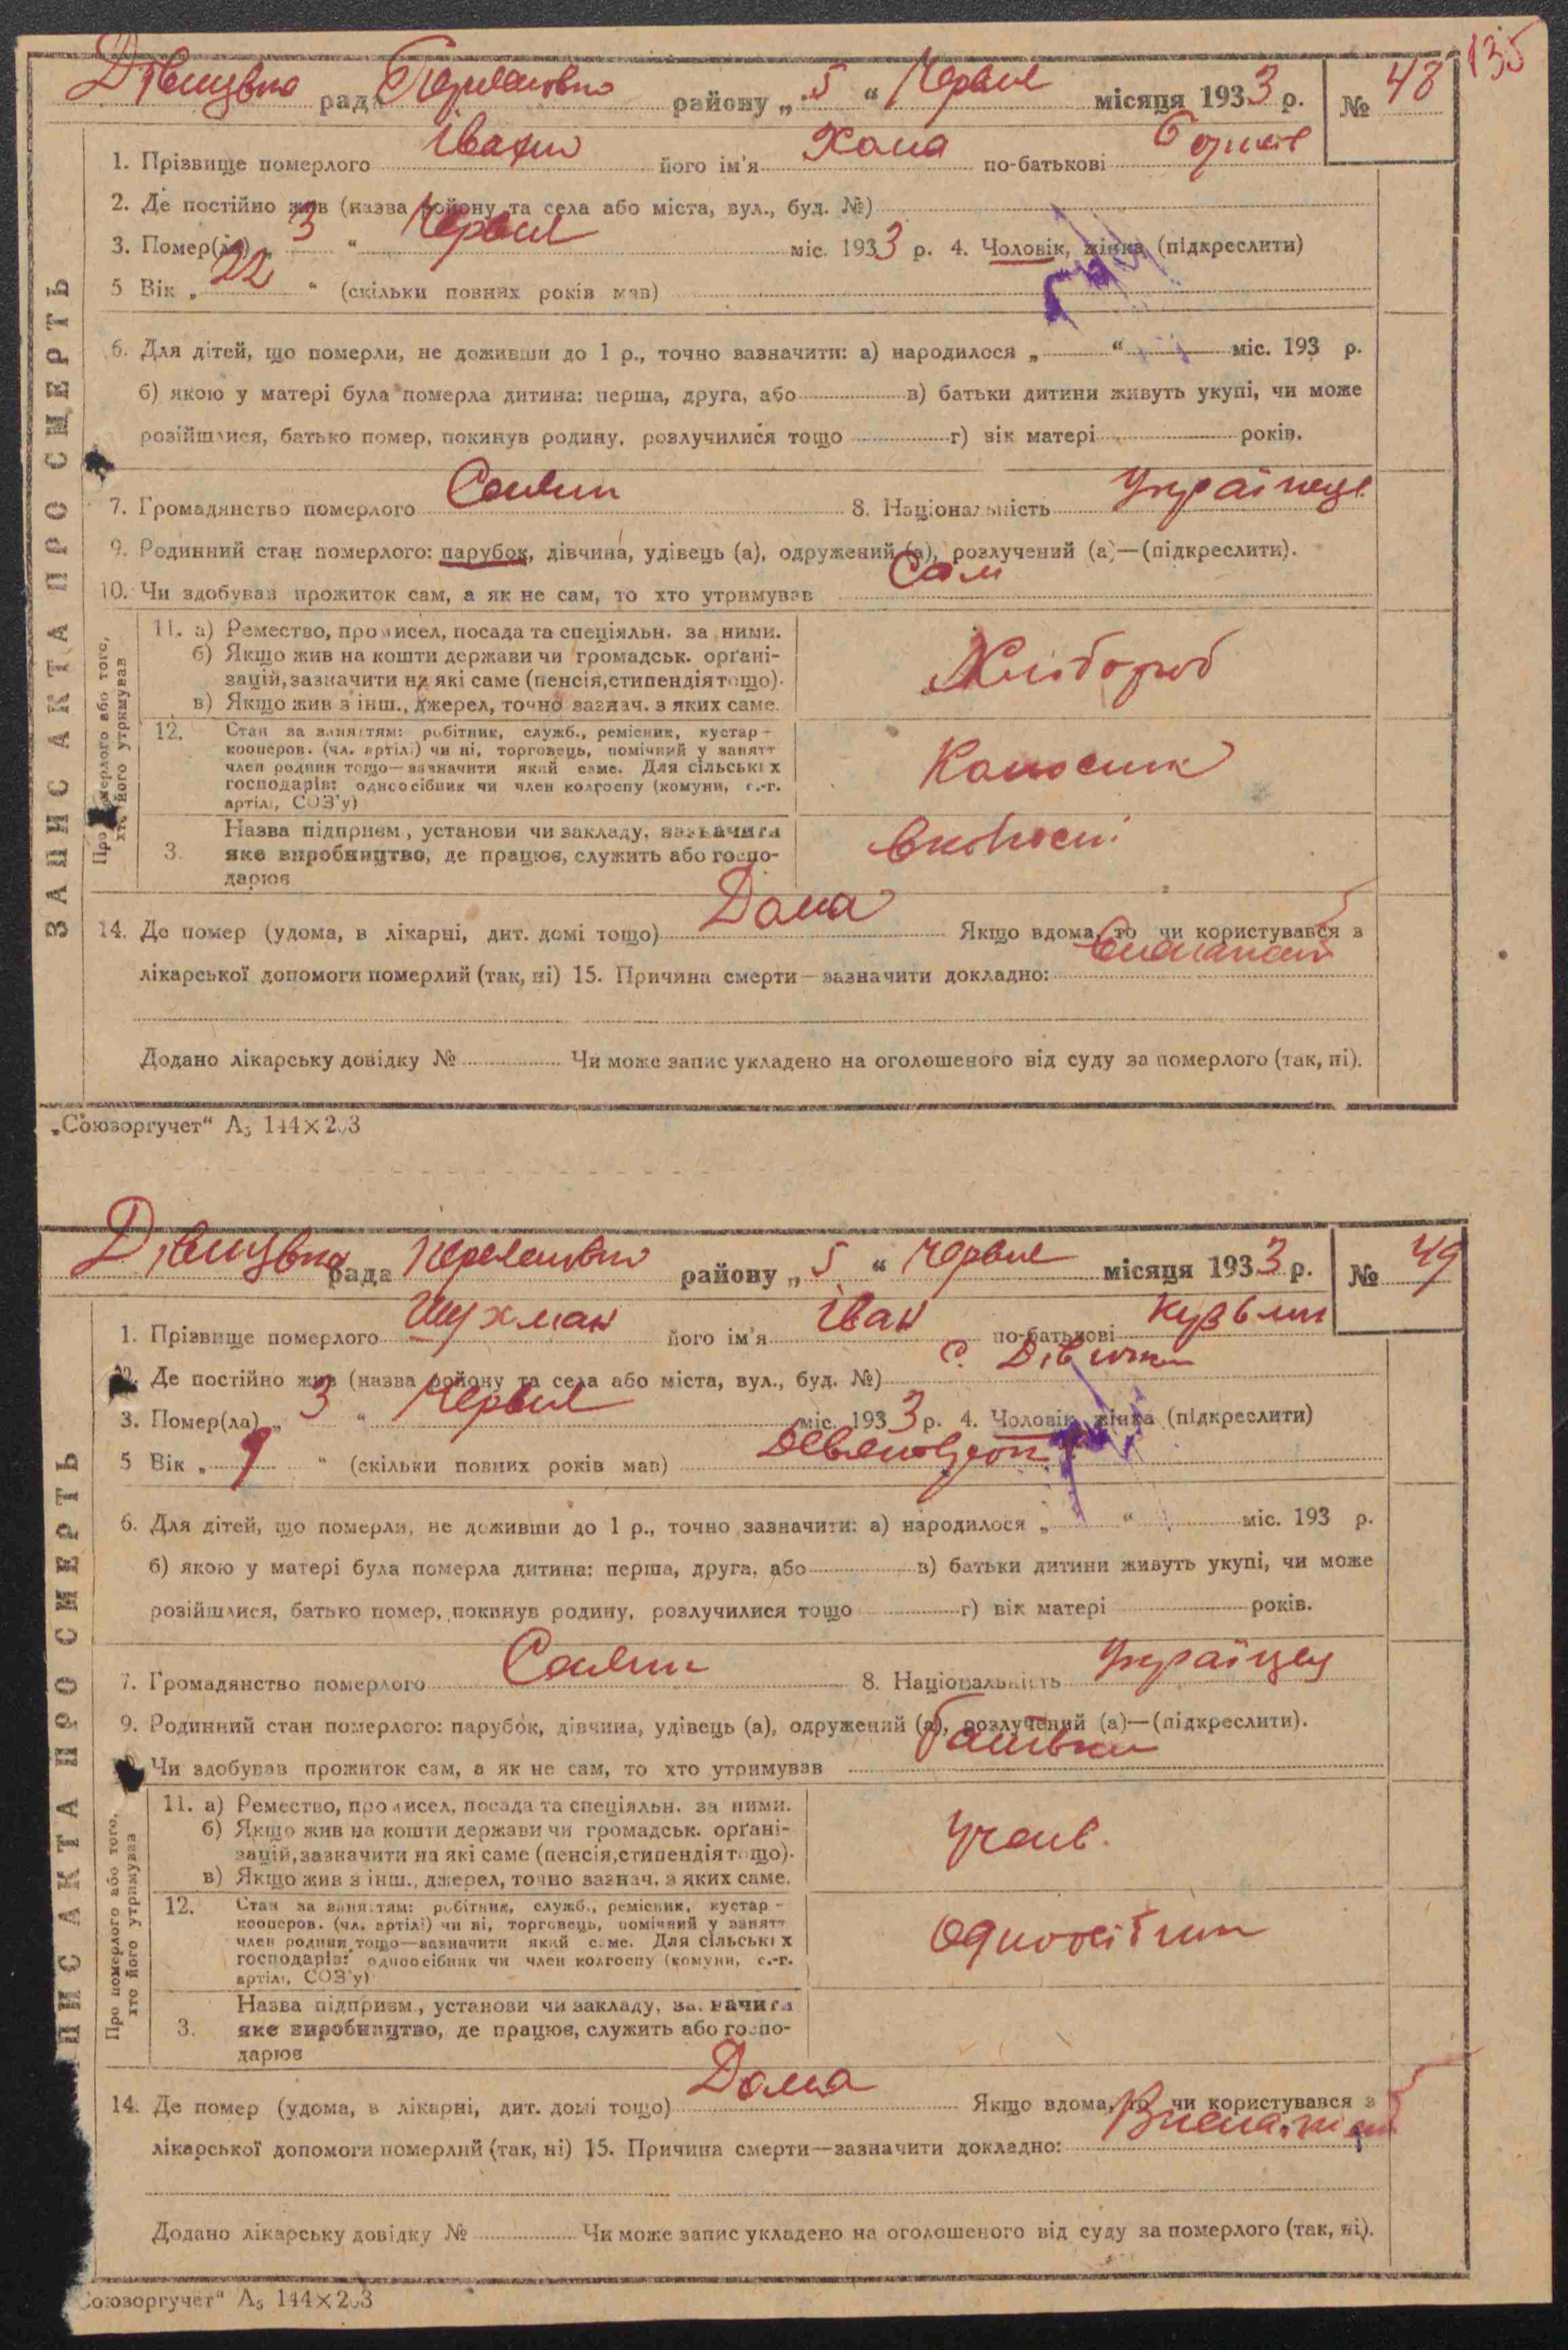 135
рада району „ 5 “ Червня місяця 1933 р. № 48
1. Прізвище померлого його ім'я по-батькові
2. Де постійно жив (назва району та села або міста, вул., буд. №)
3. Помер(ла) „ 3 “ Червня міс. 1933 р. 4. Чоловік, жінка (підкреслити)
5 Вік „ 22 “ (скільки повних років мав)
6. Для дітей, що померли, не доживши до 1 р., точно зазначити: а) народилося „ “ міс. 193 р.
б) якою у матері була померла дитина: перша, друга, або в) батьки дитини живуть укупі, чи може
розійшлися, батько помер, покинув родину, розлучилися тощо г) вік матері років.
7. Громадянство померлого 8. Національність Українець
9. Родинний стан померлого: парубок, дівчина, удівець (а), одружений (а), розлучений (а)—(підкреслити).
10. Чи здобував прожиток сам, а як не сам, то хто утримував Сам
11. а) Ремество, промисел, посада та спеціяльн. за ними.
б) Якщо жив на кошти держави чи громадськ. орґані-
зацій, зазначити на які саме (пенсія, стипендія тощо).
в) Якщо жив з інш., джерел, точно зазнач. з яких саме.
Хлібороб
12. Стан за заняттям: робітник, служб., ремісник, кустар-
кооперов. (чл. артілі) чи ні, торговець, помічний у занятт
член родини тощо—зазначити який саме. Для сільських
господарів: одноосібник чи член колгоспу (комуни, с.-г.
артілі, СОЗ'у)
3. Назва підприєм., установи чи закладу, зазначити
яке виробництво, де працює, служить або госпо-
дарює
14. Де помер (удома, в лікарні, дит. домі тощо) Дома Якщо вдома, то чи користувався з
лікарської допомоги померлий (так, ні) 15. Причина смерти—зазначити докладно:
Додано лікарську довідку № Чи може запис укладено на оголошеного від суду за померлого (так, ні).
Про померлого або того,
хто його утримував
ЗАПИС АКТА ПРО СМЕРТЬ
„Союзоргучет“ А₅ 144×203
рада району „ 5 “ Червня місяця 1933 р. № 49
1. Прізвище померлого Шухман його ім'я Іван по-батькові Кузьми
2. Де постійно жив (назва району та села або міста, вул., буд. №) с. Дівички
3. Помер(ла) „ 3 “ Червня міс. 1933 р. 4. Чоловік, жінка (підкреслити)
5 Вік „ 9 “ (скільки повних років мав)
6. Для дітей, що померли, не доживши до 1 р., точно зазначити: а) народилося „ “ міс. 193 р.
б) якою у матері була померла дитина: перша, друга, або в) батьки дитини живуть укупі, чи може
розійшлися, батько помер, покинув родину, розлучилися тощо г) вік матері років.
7. Громадянство померлого 8. Національність Українец
9. Родинний стан померлого: парубок, дівчина, удівець (а), одружений (а), розлучений (а)—(підкреслити).
Чи здобував прожиток сам, а як не сам, то хто утримував
11. а) Ремество, промисел, посада та спеціяльн. за ними.
б) Якщо жив на кошти держави чи громадськ. орґані-
зацій, зазначити на які саме (пенсія, стипендія тощо).
в) Якщо жив з інш., джерел, точно зазнач. з яких саме.
12. Стан за заняттям: робітник, служб., ремісник, кустар-
кооперов. (чл. артілі) чи ні, торговець, помічний у занятт
член родини тощо—зазначити який саме. Для сільських
господарів: одноосібник чи член колгоспу (комуни, с.-г.
артілі, СОЗ'у)
3. Назва підприєм., установи чи закладу, зазначити
яке виробництво, де працює, служить або госпо-
дарює
14. Де помер (удома, в лікарні, дит. домі тощо) Дома Якщо вдома, то чи користувався з
лікарської допомоги померлий (так, ні) 15. Причина смерти—зазначити докладно:
Додано лікарську довідку № Чи може запис укладено на оголошеного від суду за померлого (так, ні).
Про померлого або того,
хто його утримував
ПИС АКТА ПРО СМЕРТЬ
оюзоргучет“ А₅ 144×203